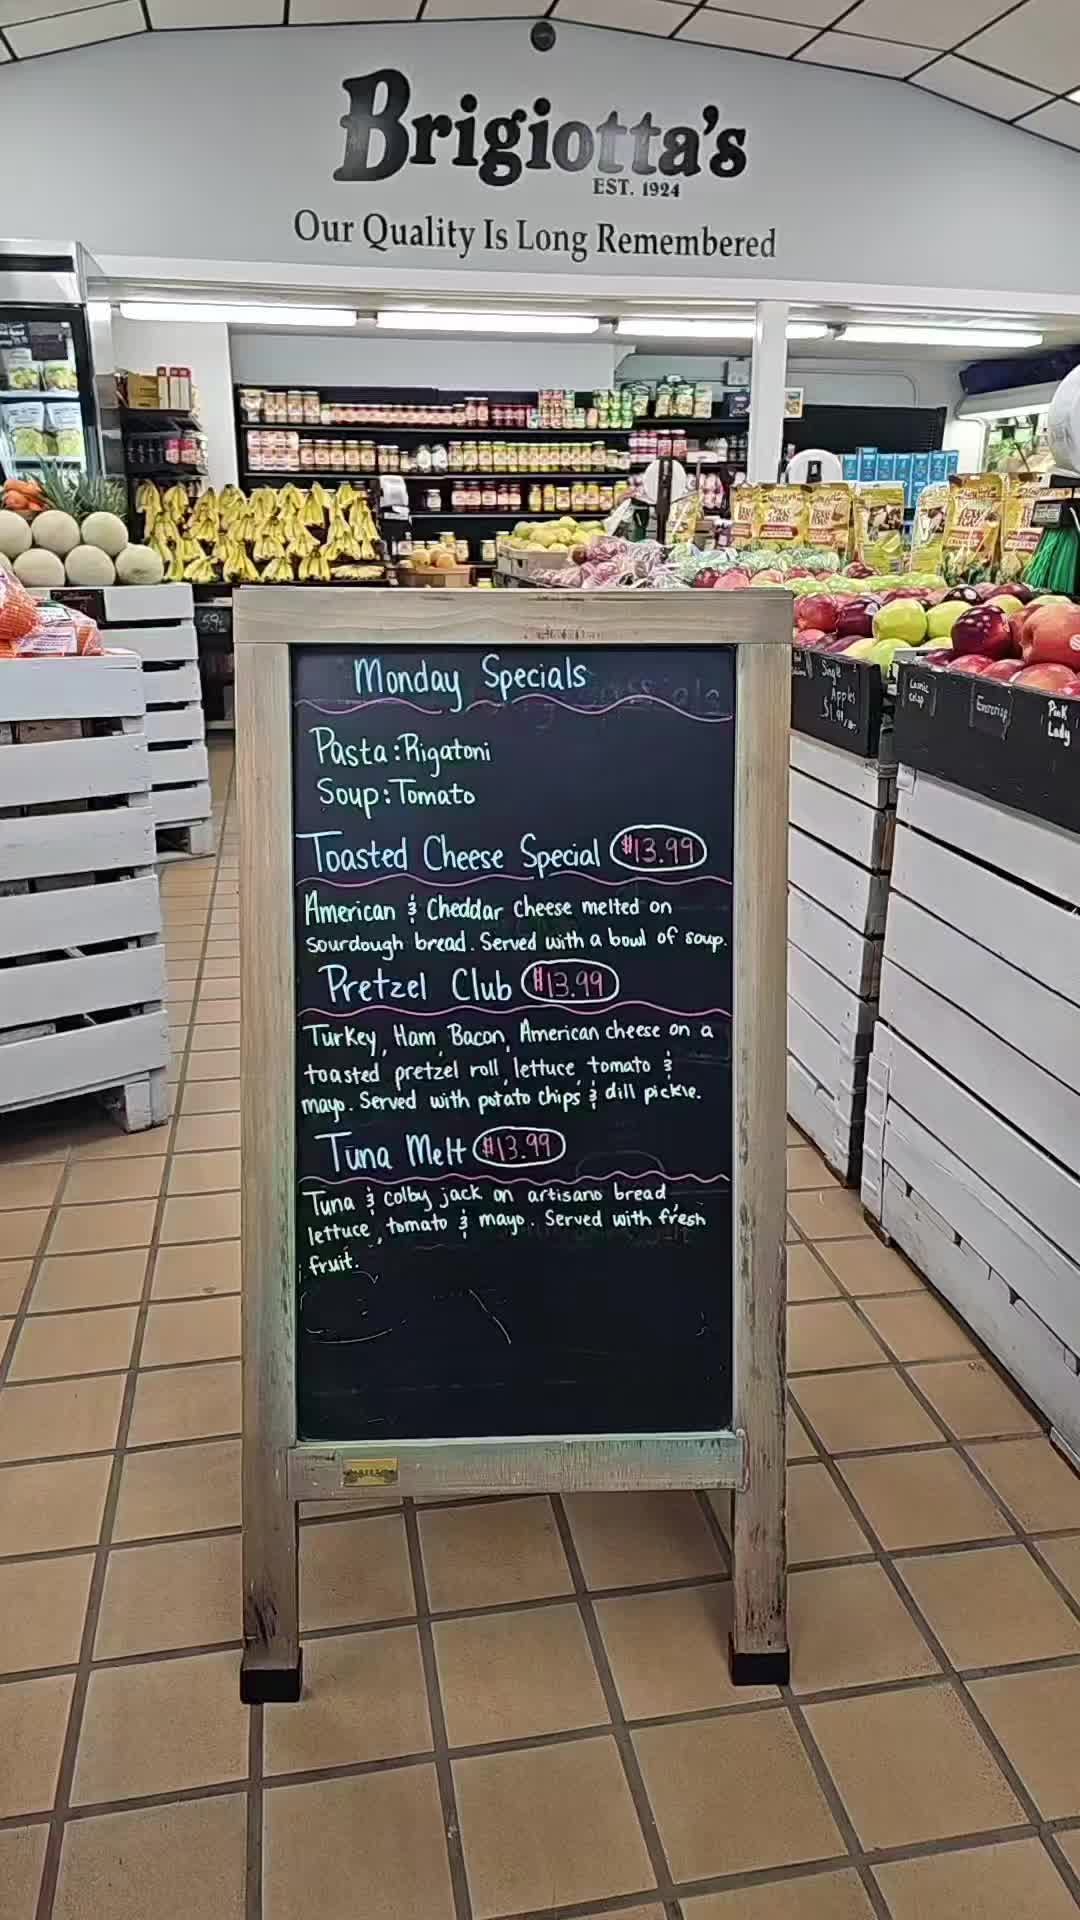 Brigiotta's
EST. 1924
Our Quality Is Long Remembered
Monday Specials
Pasta: Rigatoni
Soup: Tomato
Toasted Cheese Special $13.99
American & Cheddar cheese melted on
sourdough bread. Served with a bowl of soup.
Pretzel Club $13.99
Turkey, Ham, Bacon, American cheese on a
toasted pretzel roll, lettuce, tomato &
mayo. Served with potato chips & dill pickle.
Tuna Melt $13.99
Tuna & colby jack on artisano bread,
lettuce, tomato & mayo. Served with fresh
fruit.
59¢
Single
Apples
Cosmic
Crisp
Envercrisp
Pink
Lady